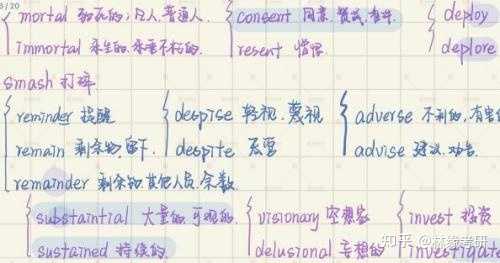 3/20
mortal 致死的;凡人,普通人. consent 同意,赞成,准许. deploy
immortal 永生的.永垂不朽的. resent 愤恨 deplore
smash 打碎
reminder 提醒 despise 轻视.蔑视 adverse 不利的,有害
remain 剩余物,留下. despite 尽管 advise 建议.劝告.
remainder 剩余物.其他人员.余数.
substaintial 大量的.可观的. visionary 空想家 invest 投资
sustained 持续的 delusional 妄想的 investigate
知乎 @林缘考研